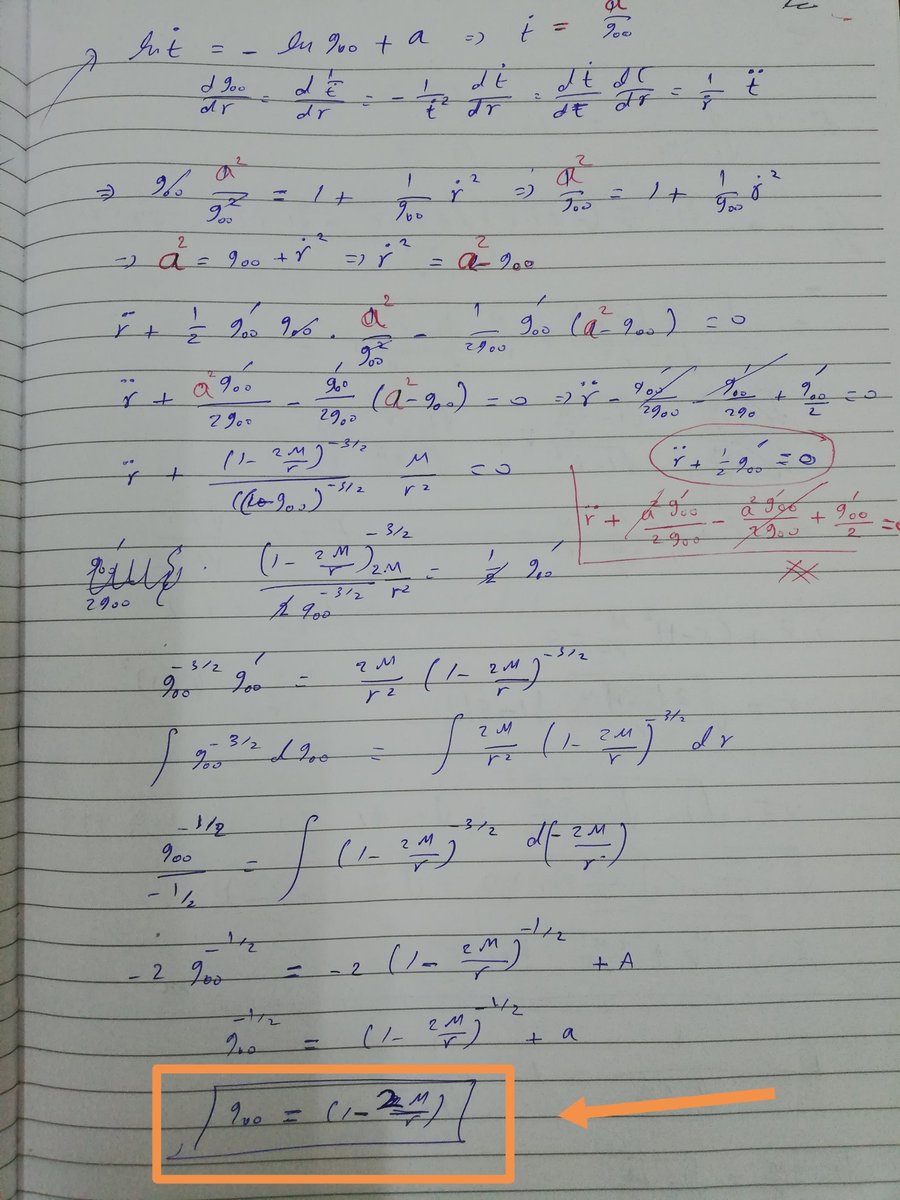 ln ṫ = - ln g₀₀ + a ⇒ ṫ = a/g₀₀
dg₀₀/dr = d(1/ṫ)/dr = - 1/ṫ² dṫ/dr = dṫ/dτ dτ/dr = 1/ṙ ẗ
⇒ g₀₀ a²/g₀₀² = 1 + 1/g₀₀ ṙ² ⇒ a²/g₀₀ = 1 + 1/g₀₀ ṙ²
⇒ a² = g₀₀ + ṙ² ⇒ ṙ² = a² - g₀₀
r̈ + 1/2 g₀₀′ g₀₀ · a²/g₀₀² - 1/2g₀₀ g₀₀′ (a² - g₀₀) = 0
r̈ + a² g₀₀′/2g₀₀ - g₀₀′/2g₀₀ (a² - g₀₀) = 0 ⇒ r̈ - g₀₀′/2g₀₀ - g₀₀′/2g₀ + g₀₀′/2 = 0
r̈ + (1 - 2M/r)^(-3/2)/(g₀₀)^(-3/2) M/r² = 0
r̈ + 1/2 g₀₀′ = 0
r̈ + a² g₀₀′/2g₀₀ - a² g₀₀′/2g₀₀ + g₀₀′/2 = 0
(1 - 2M/r)^(-3/2) 2M/2 g₀₀^(-3/2) r² = 1/2 g₀₀′
g₀₀^(-3/2) g₀₀′ = 2M/r² (1 - 2M/r)^(-3/2)
∫ g₀₀^(-3/2) dg₀₀ = ∫ 2M/r² (1 - 2M/r)^(-3/2) dr
g₀₀^(-1/2)/(-1/2) = ∫ (1 - 2M/r)^(-3/2) d(-2M/r)
-2 g₀₀^(-1/2) = -2 (1 - 2M/r)^(-1/2) + A
g₀₀^(-1/2) = (1 - 2M/r)^(-1/2) + a
g₀₀ = (1 - 2M/r)